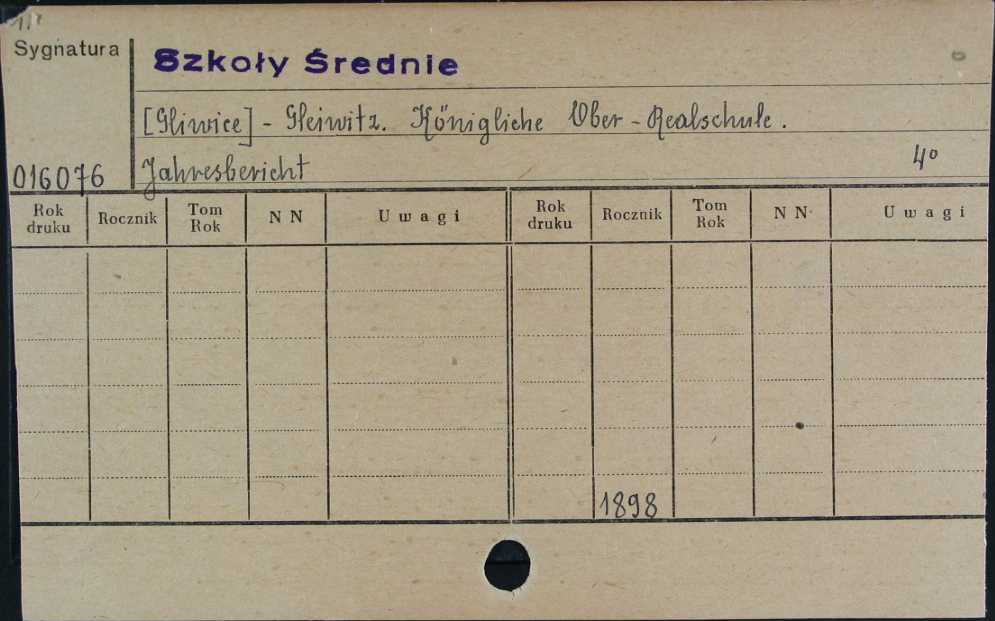 Sygnatura
Szkoły Średnie
[Gliwice] - Gleiwitz. Königliche Ober-Realschule.
016076
Jahresbericht 4°
Rok druku Rocznik Tom Rok NN Uwagi Rok druku Rocznik Tom Rok NN Uwagi
1898